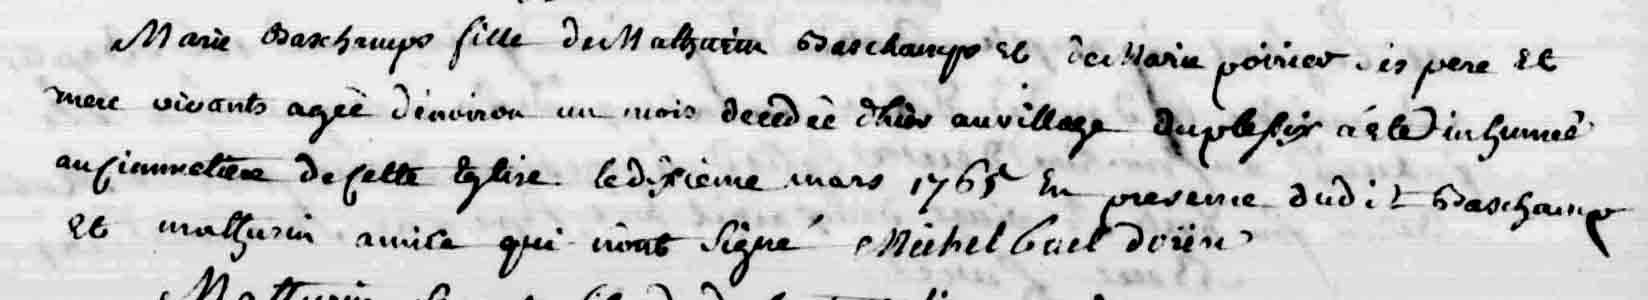 Marie Daschamps fille de Mathurin Daschamps et de Marie poirier ses pere et
mere vivants agèè dénviron un mois decedèè d'hier au village du plessix a éte inhumèé
au cimmetiere de cette Eglise le dixieme mars 1765 En presence dudit Daschamps
et mathurin amice qui nont signé Michel Guel doïen
Mathurin